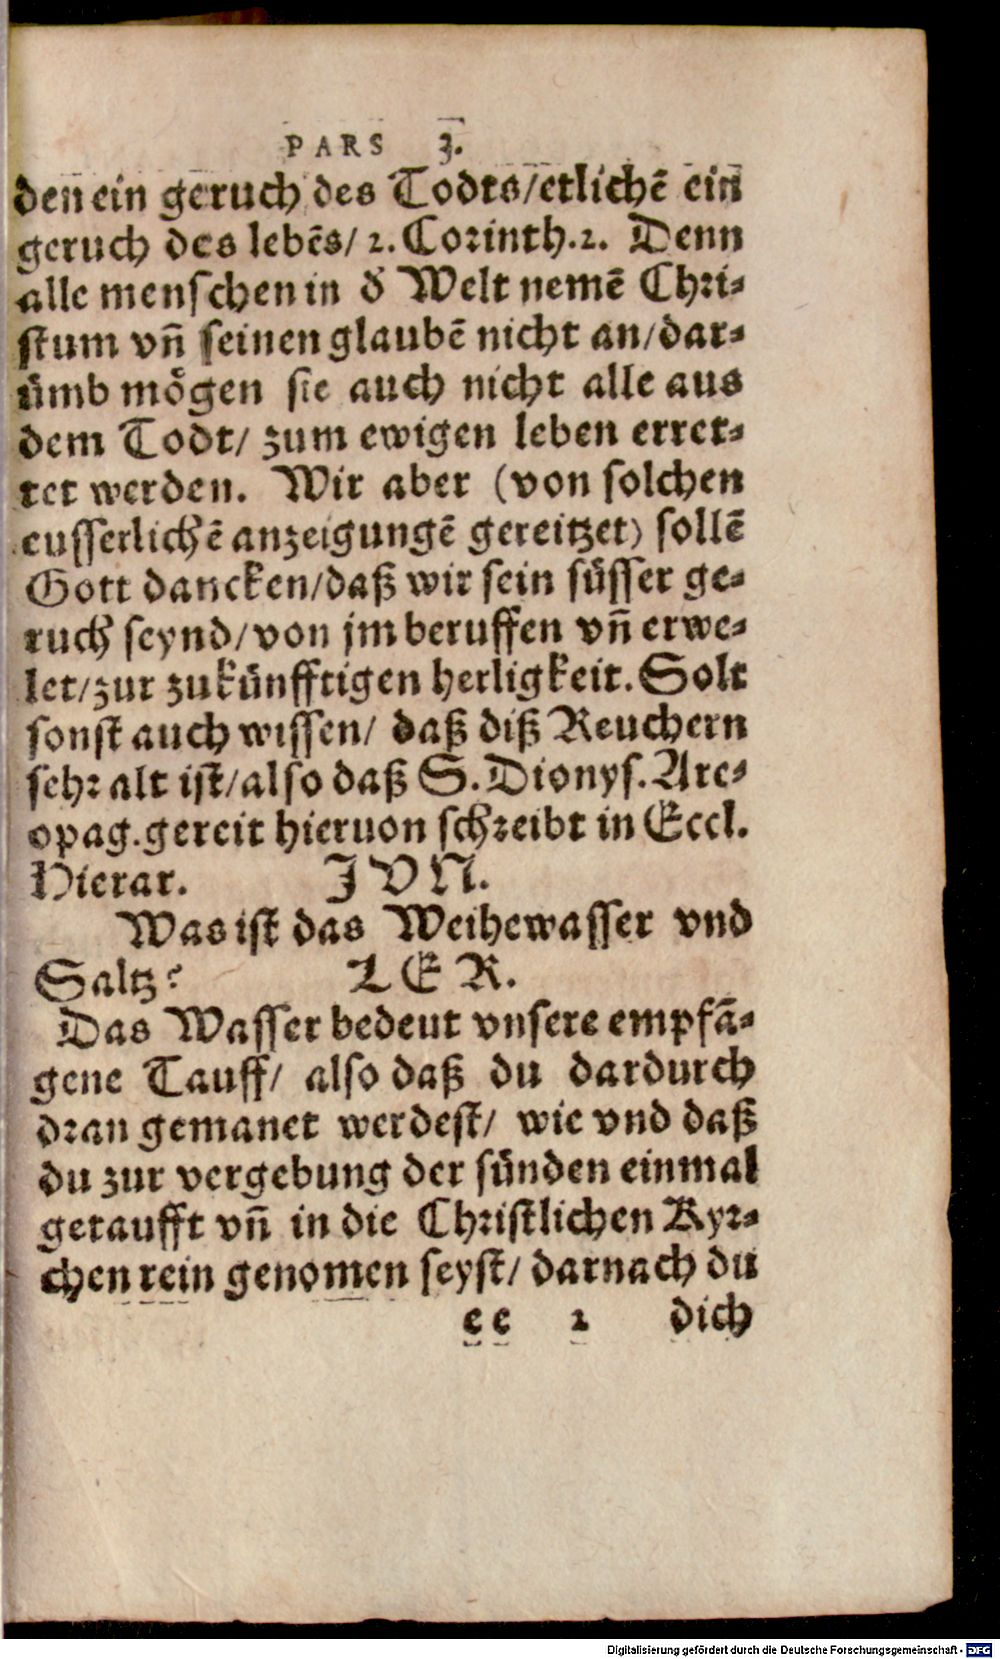 PARS 3.
den ein geruch des Todts/etlichē ein
geruch des lebēs/ 2. Corinth.2. Denn
alle menschen in d̄ Welt nemē Chri⸗
stum vn̄ seinen glaubē nicht an/dar⸗
ümb mögen sie auch nicht alle aus
dem Todt/ zum ewigen leben erret⸗
tet werden. Wir aber (von solchen
eusserlichē anzeigungē gereitzet) sollē
Gott dancken/daß wir sein süsser ge⸗
ruch seynd/von jm beruffen vn̄ erwe⸗
let/zur zukünfftigen herligkeit. Solt
sonst auch wissen/ daß diß Reuchern
sehr alt ist/also daß S. Dionys. Are⸗
opag.gereit hieruon schreibt in Eccl.
Hierar. JVN.
Was ist das Weihewasser vnd
Saltz? LER.
Das Wasser bedeut vnsere empfā⸗
gene Tauff/ also daß du dardurch
dran gemanet werdest/ wie vnd daß
du zur vergebung der sünden einmal
getaufft vn̄ in die Christlichen Kyr⸗
chen rein genomen seyst/ darnach du
cc 2 dich
Digitalisierung gefördert durch die Deutsche Forschungsgemeinschaft - DFG